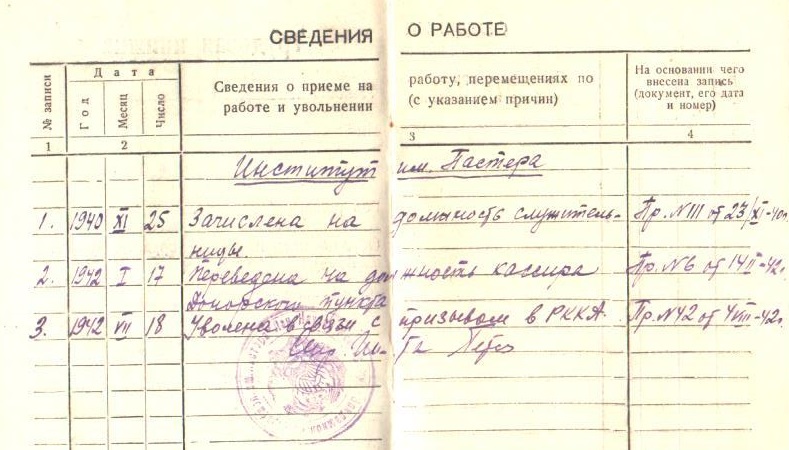 СВЕДЕНИЯ О РАБОТЕ
№ записи
Дата
Год
Месяц
Число
Сведения о приеме на работу, перемещениях по
работе и увольнении (с указанием причин)
На основании чего
внесена запись
(документ, его дата
и номер)
1 2 3 4
Институт им. Пастера
1. 1940 XI 25 Зачислена на должность служитель- Пр. N 111 от 23/XI-40г.
ницы.
2. 1942 I 17 Переведена на должность кассира Пр. N6 от 14 II-42г.
Донорского пункта
3. 1942 VII 18 Уволена в связи с призывом в РККА. Пр. N42 от 4 VIII-42г.